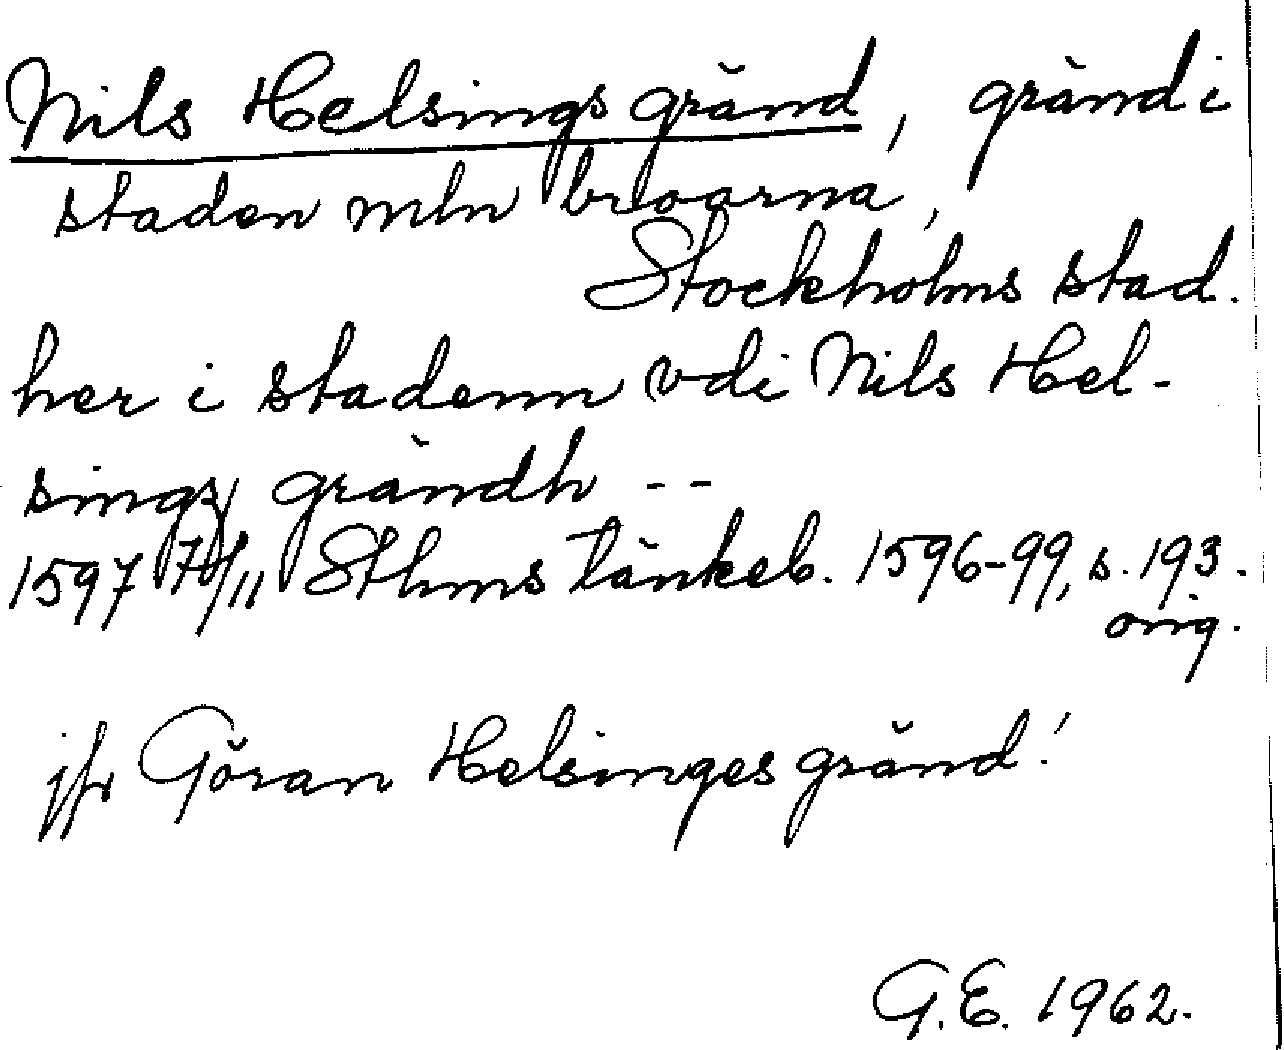 Nils Helsings gränd, gränd i
staden mln broarna,
Stockholms stad.
her i stadenn vdi Nils Hel-
sings grändh --
1597 7/11 Sthms tänkeb. 1596-99, s. 193.
orig.
jfr Göran Helsinges gränd!
G.E. 1962.